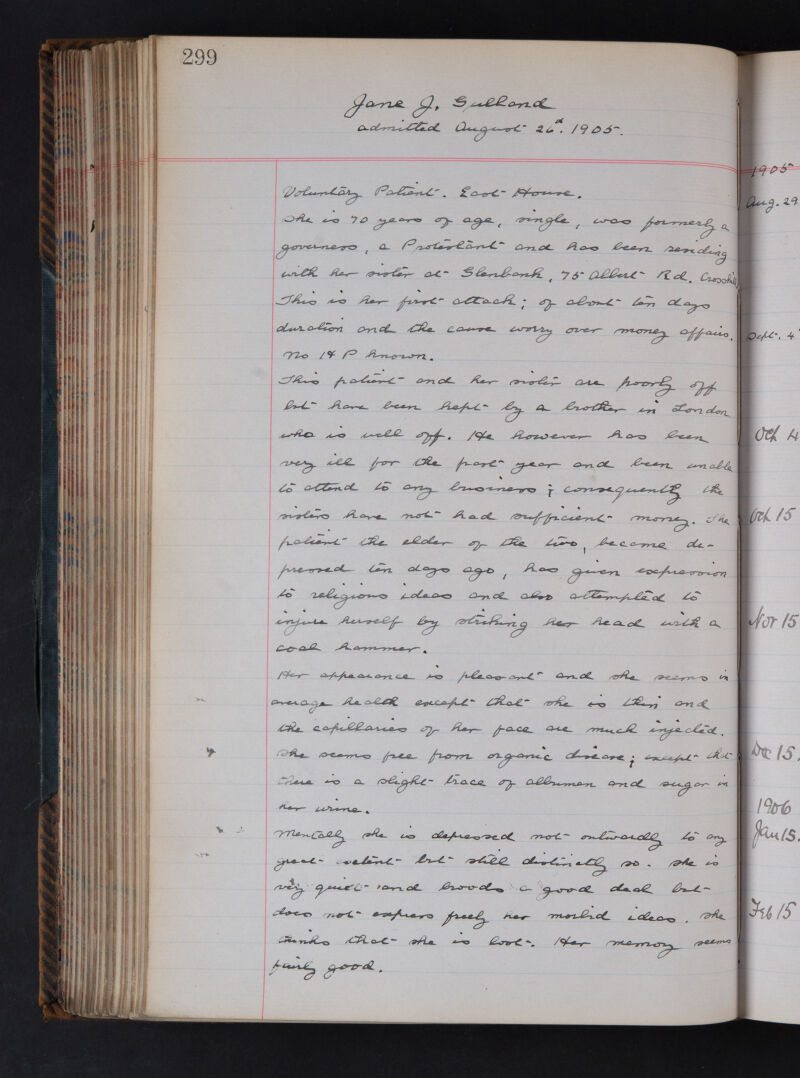 299
Jane J. Gulland
admitted August 26th. 1905.
Voluntary Patient. East House.
She is 70 years of age, single, was formerly a
governess, a Protestant and has been residing
with her sister at Glenbank, 75 Albert Rd. Crosshill
This is her first attack; of about ten days
duration and the cause worry over money affairs.
No H P known.
This patient and her sister are poorly off
but have been kept by a brother in London
who is well off. He however has been
very ill for the past year and been unable
to attend to any business; consequently the
sisters have not had sufficient money. The
patient the elder of the two, became de-
pressed ten days ago, has given expression
to religious ideas and also attempted to
injure herself by striking her head with a
coal hammer.
Her appearance is pleasant and she seems in
average health except that she is thin and
the capillaries of her face are much injected.
She seems free from organic disease; except that
there is a slight trace of albumen and sugar in
her urine.
Mentally she is depressed not outwardly to any
great extent but still distinctly so. She is
very quiet and broods a good deal but
does not express freely her morbid ideas. She
thinks that she is lost. Her memory seems
fairly good.
1905
Aug. 29
Sept. 4
Oct 4
Oct 15
Nov 15
Dec 15.
1906
Jan 15.
Feb 15